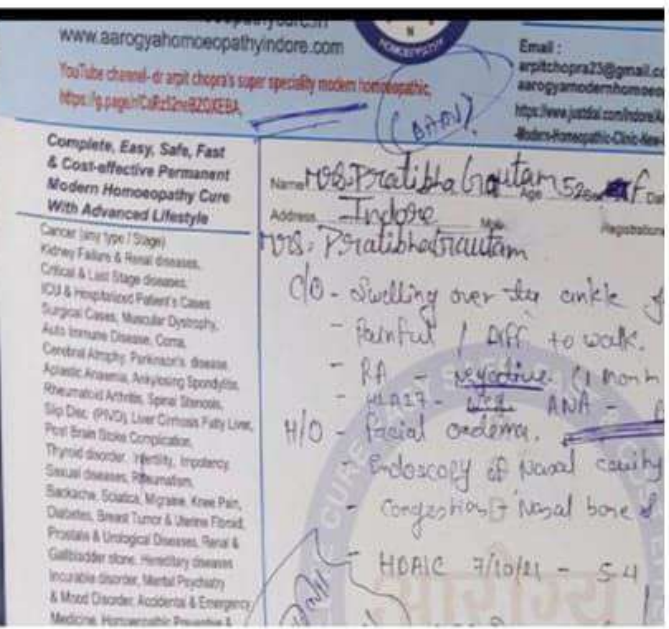 www.aarogyahomoeopathyindore.com
YouTube channel- dr arpit chopra's super speciality modern homoeopathic,
HOMOEOPATHY
Email :
arpitchopra23@gmail.co
aarogyamodernhomoeo
https://www.justdial.com/Indore/A
-Modern-Homeopathic-Clinic-New
Complete, Easy, Safe, Fast
& Cost-effective Permanent
Modern Homoeopathy Cure
With Advanced Lifestyle
Cancer (any type / Stage)
Kidney Failure & Renal diseases,
Critical & Last Stage diseases,
ICU & Hospitalized Patient's Cases
Surgical Cases, Muscular Dystrophy,
Auto Immune Disease, Coma,
Cerebral Atrophy, Parkinson's disease,
Aplastic Anaemia, Ankylosing Spondylitis,
Rheumatoid Arthritis, Spinal Stenosis,
Slip Disc, (PIVD), Liver Cirrhosis Fatty Liver,
Post Brain Stoke Complication,
Thyroid disorder, Infertility, Impotency,
Sexual diseases, Rheumatism,
Backache, Sciatica, Migraine, Knee Pain,
Diabetes, Breast Tumor & Uterine Fibroid,
Prostate & Urological Diseases, Renal &
Gallbladder stone, Hereditary diseases
Incurable disorder, Mental Psychiatry
& Mood Disorder, Accidental & Emergency
Medicine, Homoeopathic Preventive &
Name Mrs. Pratibha Gautam Age 52 Sex f Dat
Address Indore Mob. Registration
Mrs. Pratibha Gautam
C/O - Swelling over the ankle
- Painful / Diff. to walk.
- RA - negative (1 month
- HLA27 - ANA -
H/O - facial oedema.
- Endoscopy of Nasal cavity
- Congestion Nasal bone
- HDAIC 7/10/21 - 5.4
आरोग्य